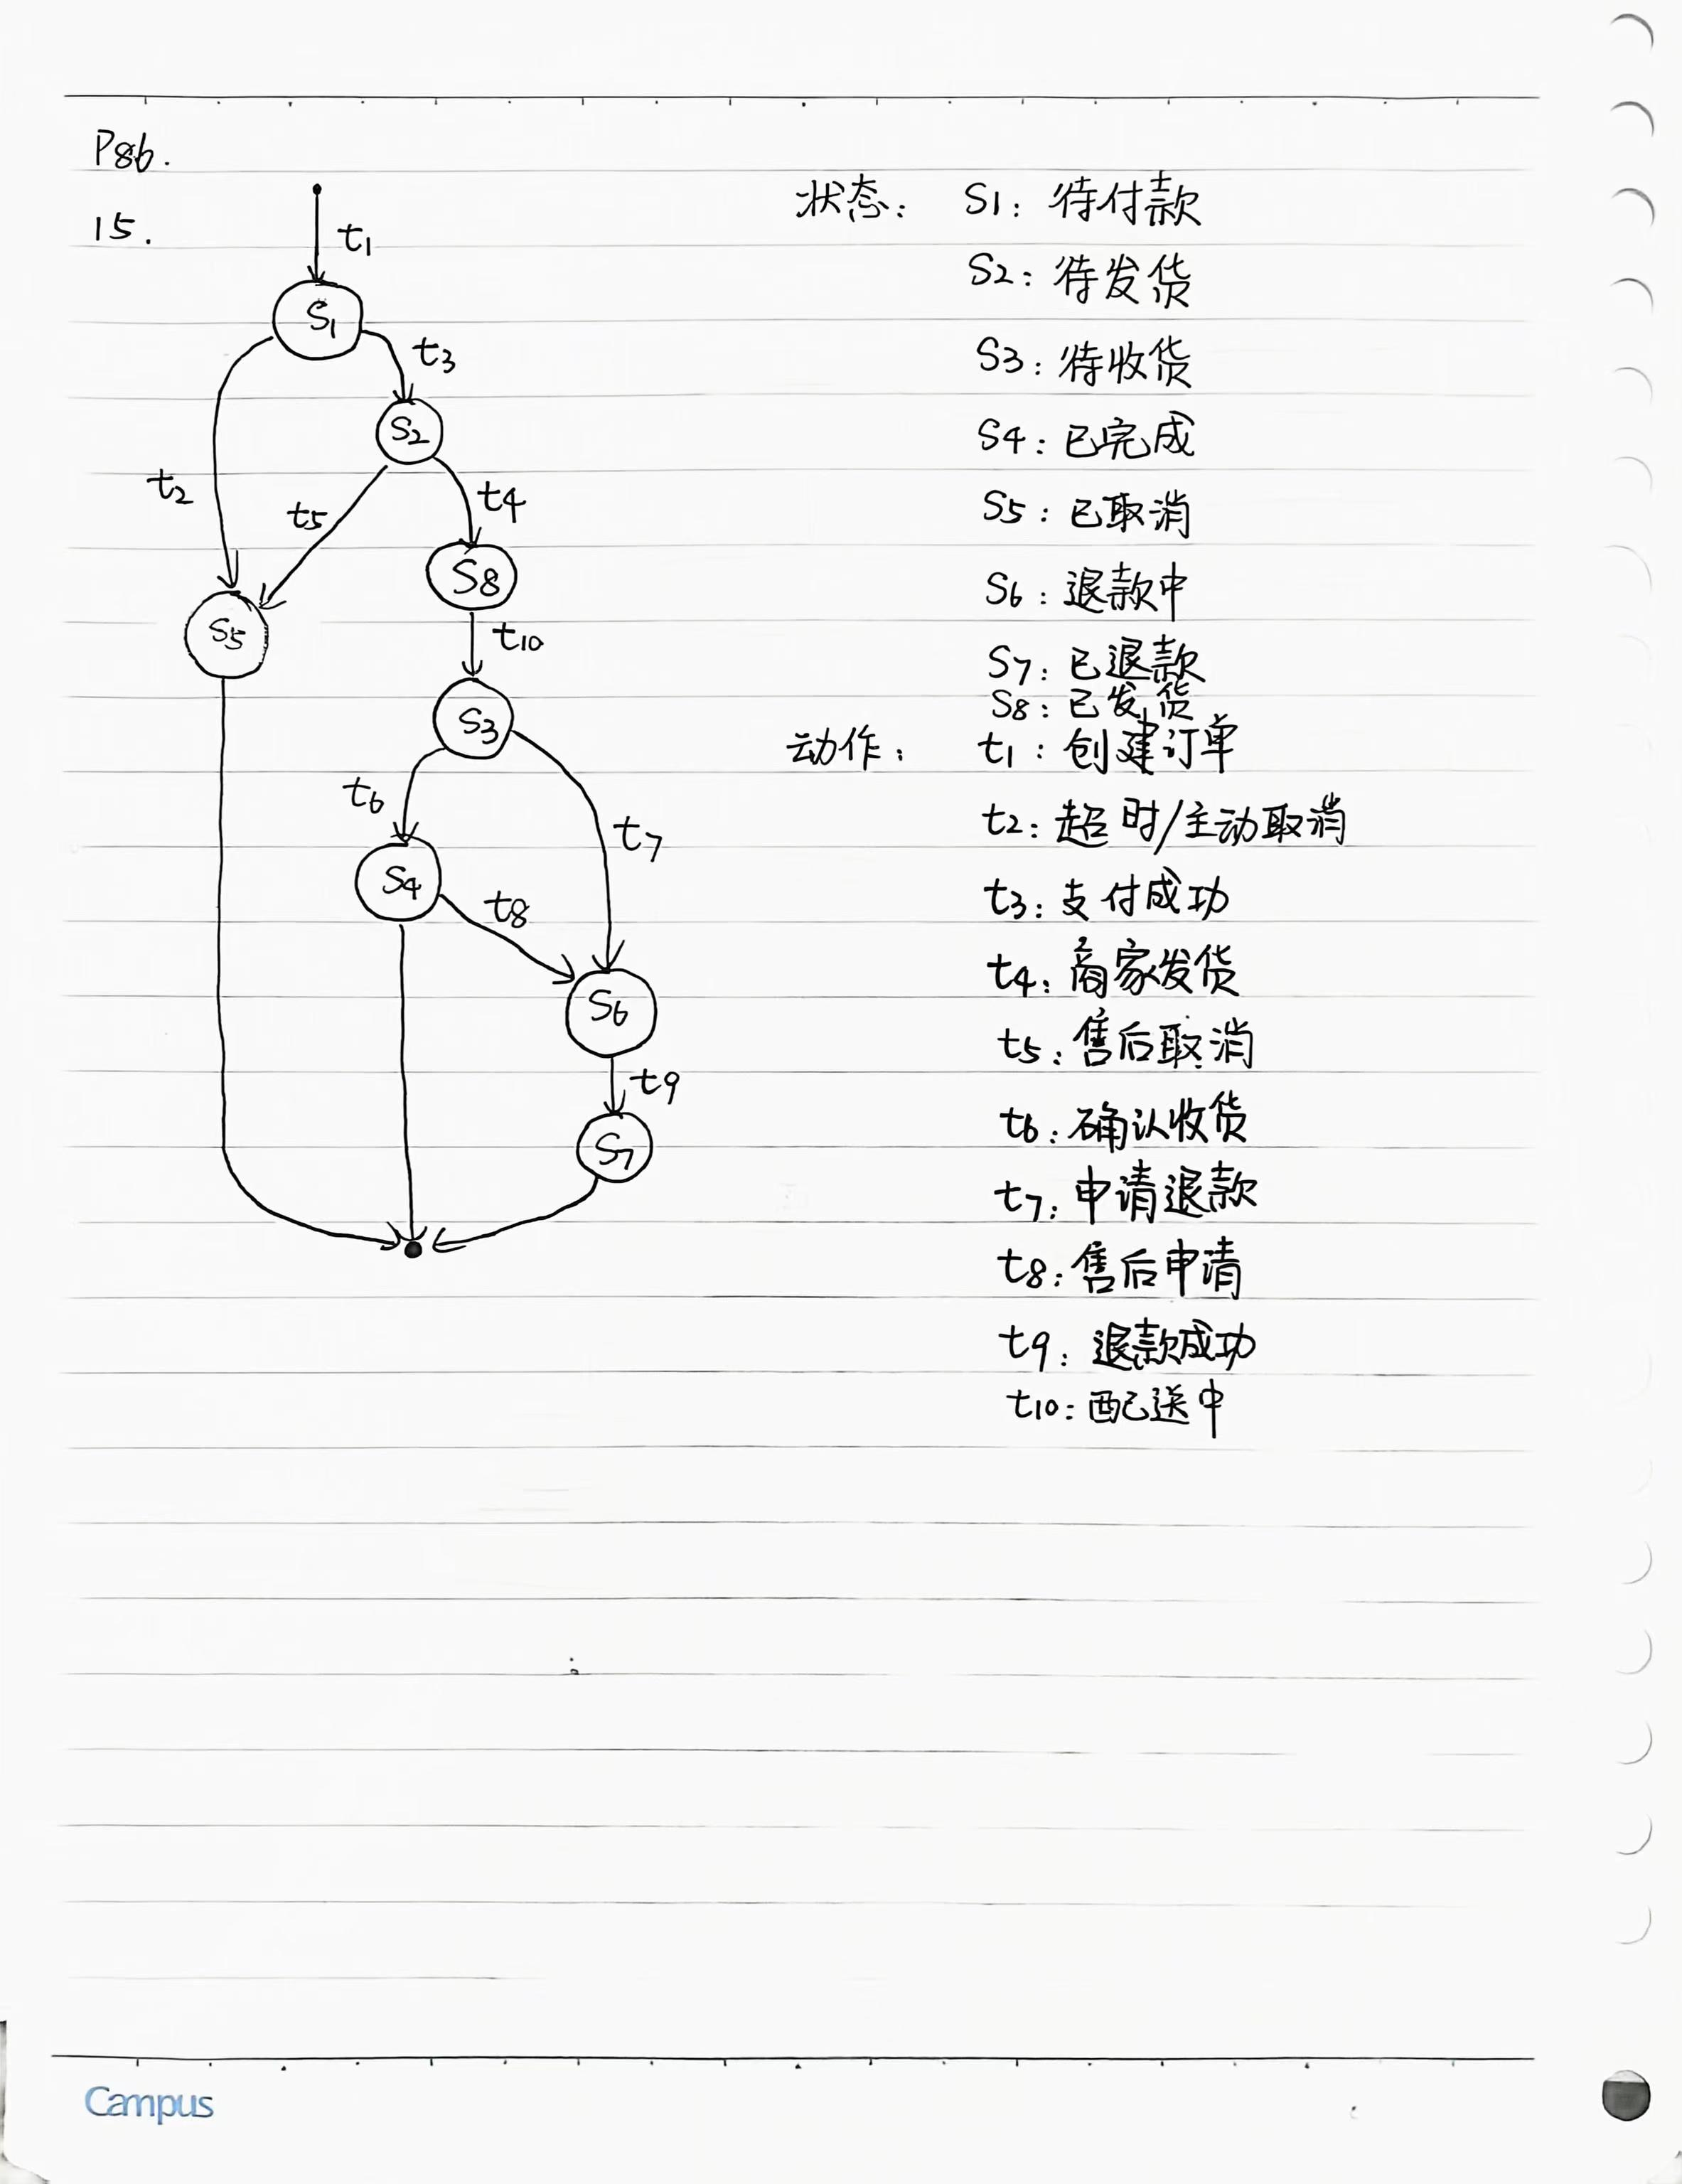 P86.
15.
t1
S1
t3
S2
t2
t5
t4
S8
S5
t10
S3
t6
t7
S4
t8
S6
t9
S7
状态: S1: 待付款
S2: 待发货
S3: 待收货
S4: 已完成
S5: 已取消
S6: 退款中
S7: 已退款
S8: 已发货
动作: t1: 创建订单
t2: 超时/主动取消
t3: 支付成功
t4: 商家发货
t5: 售后取消
t6: 确认收货
t7: 申请退款
t8: 售后申请
t9: 退款成功
t10: 配送中
Campus